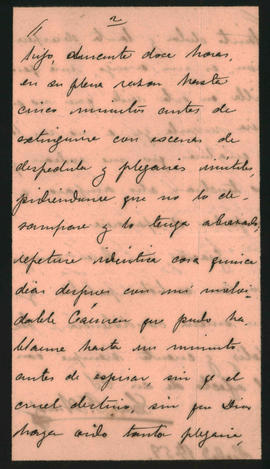 2
hijo, durante doce horas,
en su plena razon, hasta
cinco minutos antes de
extinguirse con escenas de
despedida y plegarias inutiles,
pidiendome que no lo de-
sampare y lo tenga abrazado,
repetirse identica cosa quince
dias despues con mi inolvi-
dable Cármen que pudo ha-
blarme hasta un minuto
antes de espirar sin qe el
cruel destino, sin que Dios
haya oido tanta plegaria